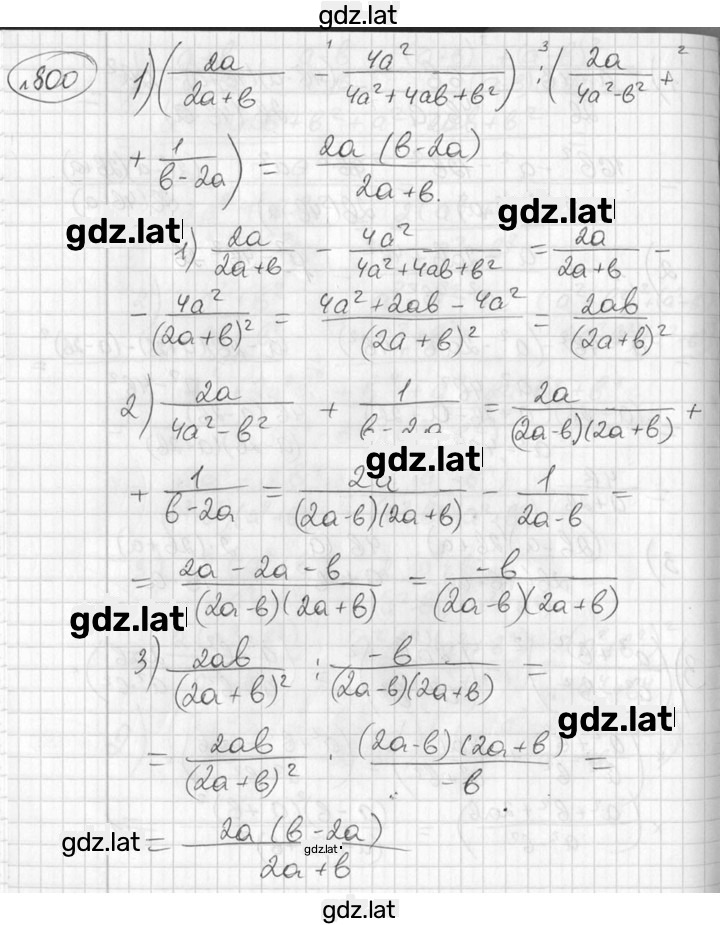 gdz.lat
№800 1) (2a/(2a+b) -¹ 4a²/(4a²+4ab+b²)) :³ (2a/(4a²-b²) +²
+ 1/(b-2a)) = 2a(b-2a)/(2a+b).
gdz.lat gdz.lat
1) 2a/(2a+b) - 4a²/(4a²+4ab+b²) = 2a/(2a+b) -
- 4a²/(2a+b)² = (4a²+2ab-4a²)/(2a+b)² = 2ab/(2a+b)²
2) 2a/(4a²-b²) + 1/(b-2a) = 2a/((2a-b)(2a+b)) +
gdz.lat
+ 1/(b-2a) = 2a/((2a-b)(2a+b)) - 1/(2a-b) =
= (2a-2a-b)/((2a-b)(2a+b)) = -b/((2a-b)(2a+b))
gdz.lat
3) 2ab/(2a+b)² : -b/((2a-b)(2a+b)) =
gdz.lat
= 2ab/(2a+b)² · (2a-b)(2a+b)/-b =
gdz.lat = 2a(b-2a)/(2a+b)
gdz.lat
gdz.lat